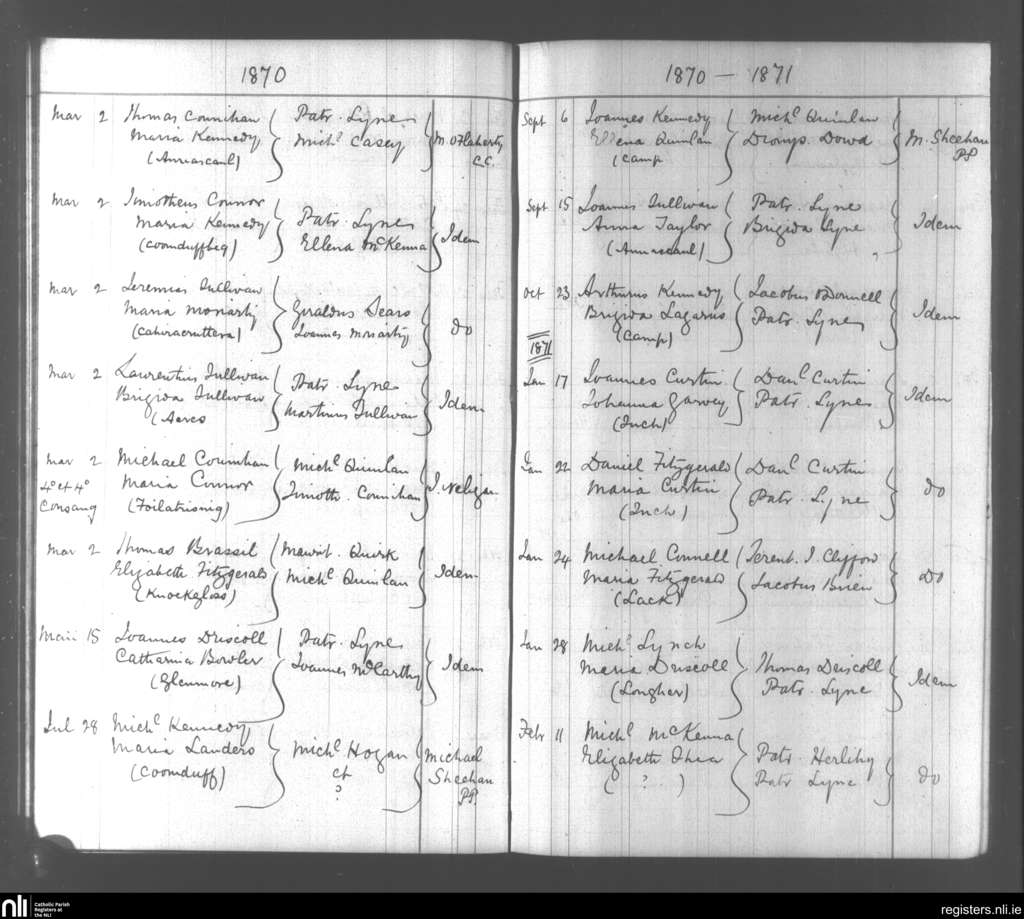 1870
Mar 2 Thomas Counihan
Maria Kennedy
(Annascaul)
Patr. Lyne
Michl Casey
M. O'Flaherty
C.C.
Mar 2 Timotheus Connor
Maria Kennedy
(Coomduffbeg)
Patr. Lyne
Ellena McKenna
Idem
Mar 2 Jeremias Sullivan
Maria Moriarty
Giraldus Sears
Joannes Moriarty
do
Mar 2 Laurentius Sullivan
Brigida Sullivan
(Acres
Patr. Lyne
Martinus Sullivan
Idem
Mar 2 Michael Counihan
4º et 4º Maria Connor
Consang (Foilatrisnig)
Michl Quinlan
Timoth. Counihan
J. Neligan
Mar 2 Thomas Brassil
Elizabeth Fitzgerald
(Knockglass)
Maurit. Quirk
Michl Quinlan
Idem
15 Joannes Driscoll
Catharina Bowler
(Glenmore)
Patr. Lyne
Joannes McCarthy
Idem
Jul 28 Michl Kennedy
Maria Landers
(Coomduff)
Michl Hogan
et
?
Michael
Sheehan
PP.
1870 — 1871
Sept 6 Joannes Kennedy
Ellena Quinlan
(Camp
Michl Quinlan
Dionys. Dowd
M. Sheehan
PP
Sept 15 Joannes Sullivan
Anna Taylor
(Annascaul)
Patr. Lyne
Brigida Lyne
Idem
Oct 23 Arthurus Kennedy
Brigida Lazarus
(Camp)
Jacobus O'Donnell
Patr. Lyne
Idem
1871
Jan 17 Joannes Curtin
Johanna Garvey
(Inch)
Danl Curtin
Patr. Lyne
Idem
Jan 22 Daniel Fitzgerald
Maria Curtin
(Inch)
Danl Curtin
Patr. Lyne
do
Jan 24 Michael Connell
Maria Fitzgerald
(Lack)
Terent. J. Clifford
Jacobus Brien
do
Jan 28 Michl Lynch
Maria Driscoll
(Longher)
Thomas Driscoll
Patr. Lyne
Idem
Febr 11 Michl McKenna
Elizabeth Shea
( ? )
Patr. Herlihy
Patr Lyne
do
nli Catholic Parish
Registers at
the NLI
registers.nli.ie